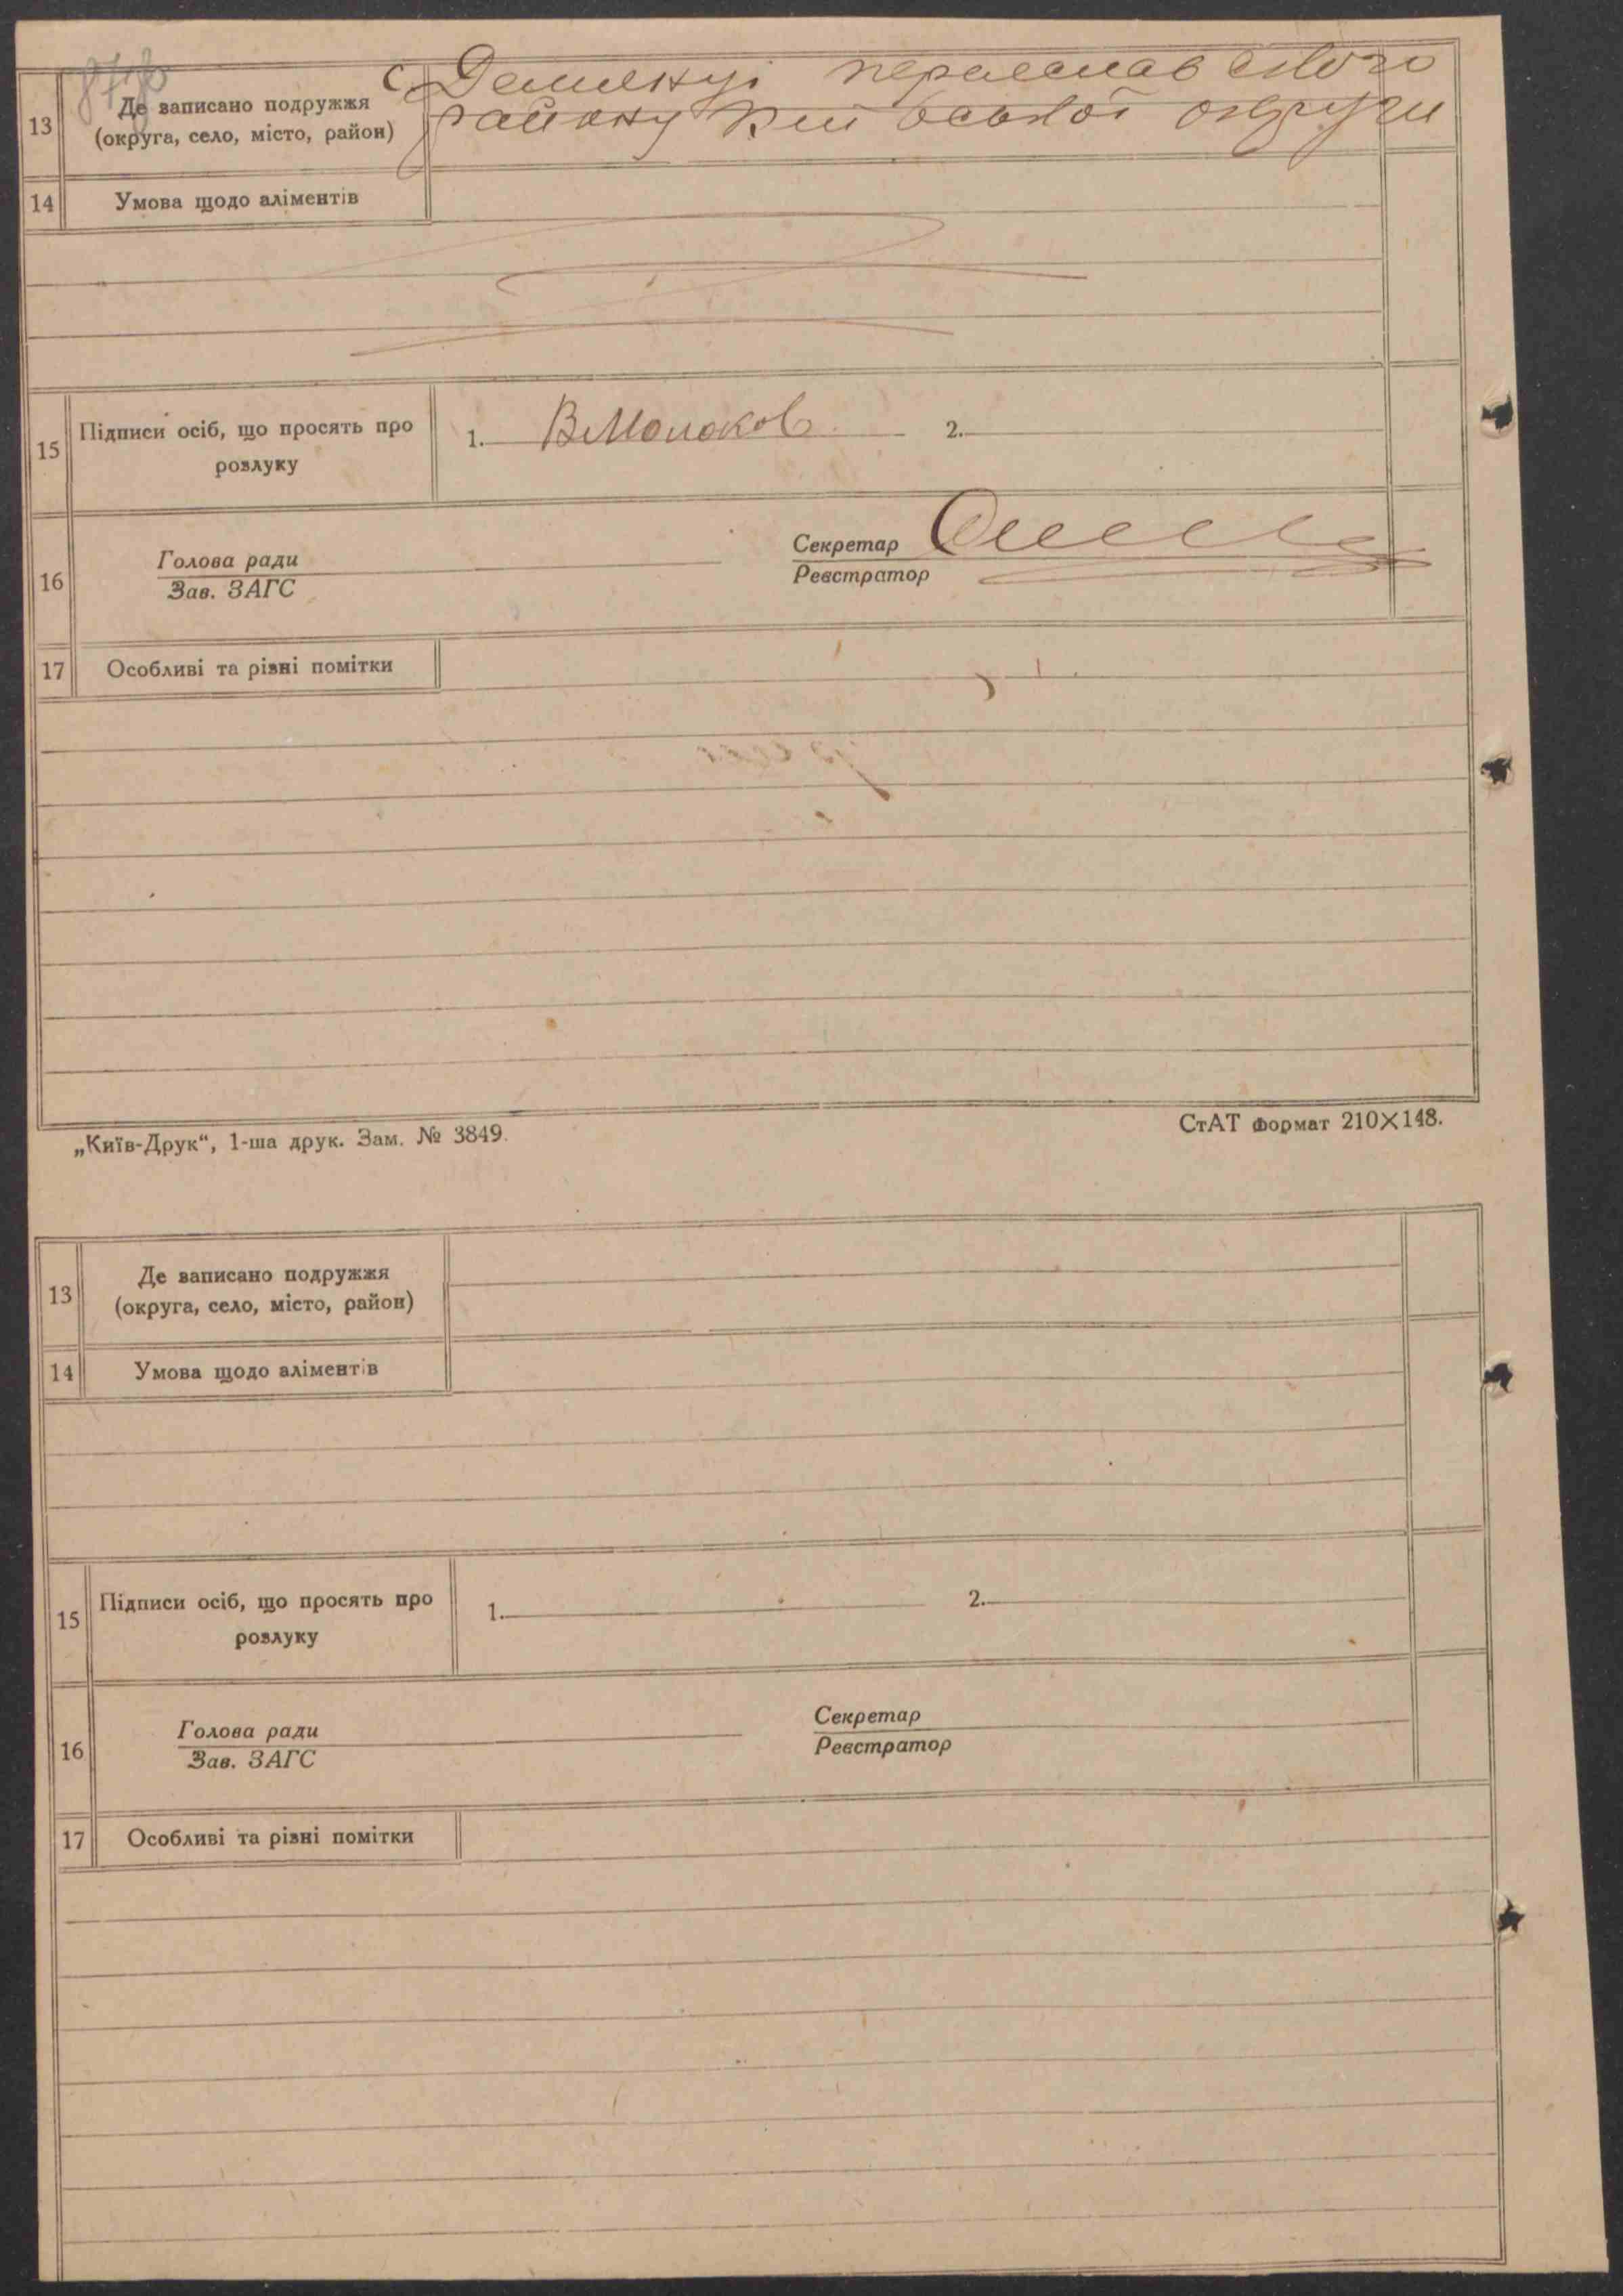 13 Де записано подружжя (округа, село, місто, район) с. Демянці переяславського
району Київської округи
14 Умова щодо аліментів
15 Підписи осіб, що просять про розлуку 1. ВМолоков 2.
16 Голова ради Секретар
Зав. ЗАГС Реєстратор
17 Особливі та різні помітки
„Київ-Друк“, 1-ша друк. Зам. № 3849. СтАТ формат 210X148.
13 Де записано подружжя
(округа, село, місто, район)
14 Умова щодо аліментів
15 Підписи осіб, що просять про 1. 2.
розлуку
16 Голова ради Секретар
Зав. ЗАГС Реєстратор
17 Особливі та різні помітки